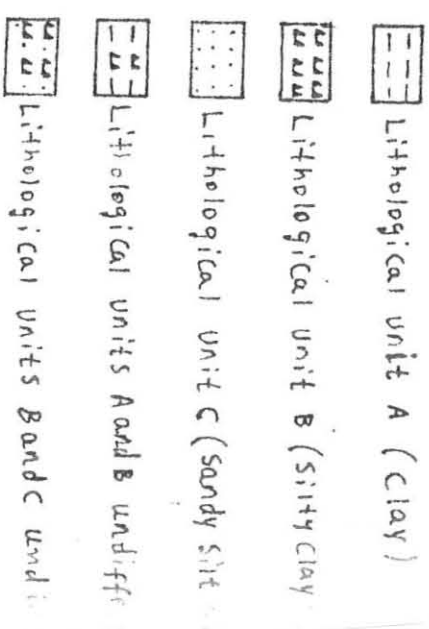 Lithological unit A (Clay)
Lithological unit B (Silty Clay
Lithological unit C (Sandy Silt
Lithological units A and B undiffe
Lithological units B and C undi